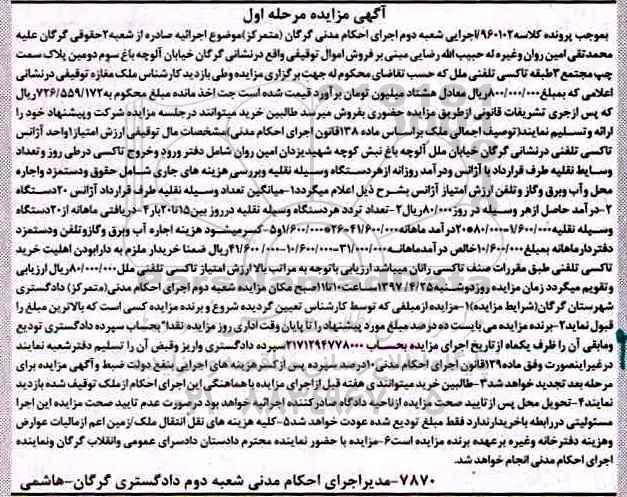 آگهی مزایده مرحله اول
بموجب پرونده کلاسه۹۶۰۱۰۲/اجرایی شعبه دوم اجرای احکام مدنی گرگان (متمرکز)موضوع اجرائیه صادره از شعبه۲حقوقی گرگان علیه
محمدتقی امین روان وغیره له حبیب الله رضایی مبنی بر فروش اموال توقیفی واقع درنشانی گرگان خیابان آلوچه باغ سوم دومین پلاک سمت
چپ مجتمع۳طبقه تاکسی تلفنی ملل که حسب تقاضای محکوم له جهت برگزاری مزایده وطی بازدید کارشناس ملک مغازه توقیفی درنشانی
اعلامی که بمبلغ۸۰۰/۰۰۰/۰۰۰ریال معادل هشتاد میلیون تومان برآورد قیمت شده است جت اخذ مانده مبلغ محکوم به۷۲۶/۵۵۹/۱۷۲ریال
که پس ازجری تشریفات قانونی ازطریق مزایده حضوری بفروش میرسد طالبین خرید میتوانند درجلسه مزایده شرکت وپیشنهاد خود را
ارائه وتسلیم نمایند(توصیف اجمالی ملک براساس ماده ۱۳۸قانون اجرای احکام مدنی)مشخصات مال توقیفی ارزش امتیاز۱واحد آژانس
تاکسی تلفنی درنشانی گرگان خیابان ملل آلوچه باغ نبش کوچه شهیدیزدان امین روان شامل دفتر ورود وخروج تاکسی درطی روز وتعداد
وسایط نقلیه طرف قرارداد با آژانس ودرآمد روزانه ازهردستگاه وسیله نقلیه وبررسی هزینه های جاری شامل حقوق ودستمزد واجاره
محل وآب وبرق وگاز وتلفن ارزش امتیاز آژانس بشرح ذیل اعلام میگردد۱-میانگین تعداد وسیله نقلیه طرف قرارداد آژانس ۲۰دستگاه
۲-درآمد حاصل ازهر وسیله در روز۸۰/۰۰۰ریال۲-تعداد تردد هردستگاه وسیله نقلیه درروز بین۱۵تا۲۰بار۴-دریافتی ماهانه از۲۰دستگاه
وسیله نقلیه۱/۶۰۰/۰۰۰-۸۰/۰۰۰*۲۰درآمد ماهانه۴۱/۶۰۰/۰۰۰-۲۶*۱/۶۰۰/۰۰۰و۵-کسرمیشود هزینه اجاره آب وبرق وگازوتلفن ودستمزد
دفتردارماهانه بمبلغ۱۰/۶۰۰/۰۰۰خالص درآمدماهانه۳۱/۰۰۰/۰۰۰-۱۰/۶۰۰/۰۰۰-۴۱/۶۰۰/۰۰۰ریال ضمنا خریدار ملزم به دارابودن اهلیت خرید
تاکسی تلفنی طبق مقررات صنف تاکسی رانان میباشد ارزیابی باتوجه به مراتب بالا ارزش امتیاز تاکسی تلفنی ملل۸۰۰/۰۰۰/۰۰۰ریال ارزیابی
وتقویم میگردد زمان مزایده روزدوشنبه۱۳۹۷/۴/۲۵ساعت۱۰تا۱۱صبح مکان مزایده شعبه دوم اجرای احکام مدنی(متمرکز) دادگستری
شهرستان گرگان(شرایط مزایده)۱-مزایده ازمبلغی که توسط کارشناس تعیین گردیده شروع و برنده مزایده کسی است که بالاترین مبلغ را
قبول نماید۲-برنده مزایده می بایست ده درصد مبلغ مورد پیشنهاد را تا پایان وقت اداری روز مزایده نقدا"بحساب سپرده دادگستری تودیع
ومابقی آن را ظرف یکماه از تاریخ اجرای مزایده بحساب ۲۱۷۱۲۹۴۷۷۸۰۰۰سپرده دادگستری واریز وقبض آن را تسلیم دفترشعبه نمایند
درغیراینصورت وفق ماده۱۲۹قانون اجرای احکام مدنی۱۰درصد سپرده پس ازکسرهزینه های اجرایی بنفع دولت ضبط وآگهی مزایده برای
مرحله بعد تجدید خواهد شد۳-طالبین خرید میتوانندی هفته قبل ازاجرای مزایده باهماهنگی این اجرای احکام ازملک توقیف شده بازدید
نمایند۴-تحویل محل پس از تایید صحت مزایده ازناحیه دادگاه صادرکننده اجرائیه خواهد بود درصورت عدم تایید صحت مزایده این اجرا
مسئولیتی دررابطه باخریدارندارد فقط مبلغ تودیع شده عودت خواهد شد۵-کلیه هزینه های نقل انتقال ملک/زمین اعم ازمالیات عوارض
وهزینه دفترخانه وغیره برعهده برنده مزایده است۶-مزایده با حضور نماینده محترم دادستان دادسرای عمومی وانقلاب گرگان ونماینده
اجرای احکام مدنی انجام خواهد شد.
۷۸۷۰-مدیراجرای احکام مدنی شعبه دوم دادگستری گرگان-هاشمی